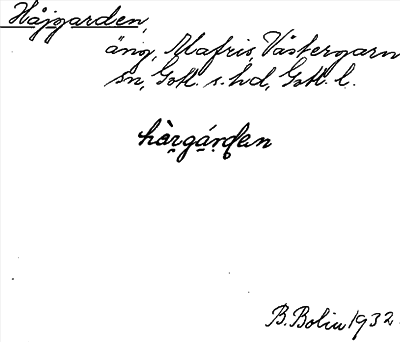 Håjgarden,
äng, Mafris, Västergarn
sn, Gotl. s. hd, Gotl. l.
hàrgárden
B. Bolin 1932.